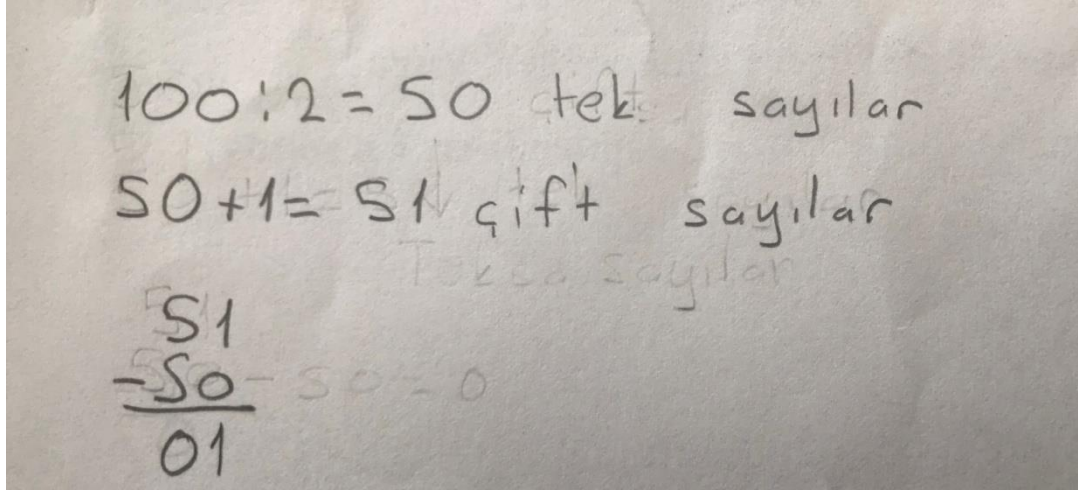 100:2=50 tek sayılar
50+1=51 çift sayılar
51
-50
01